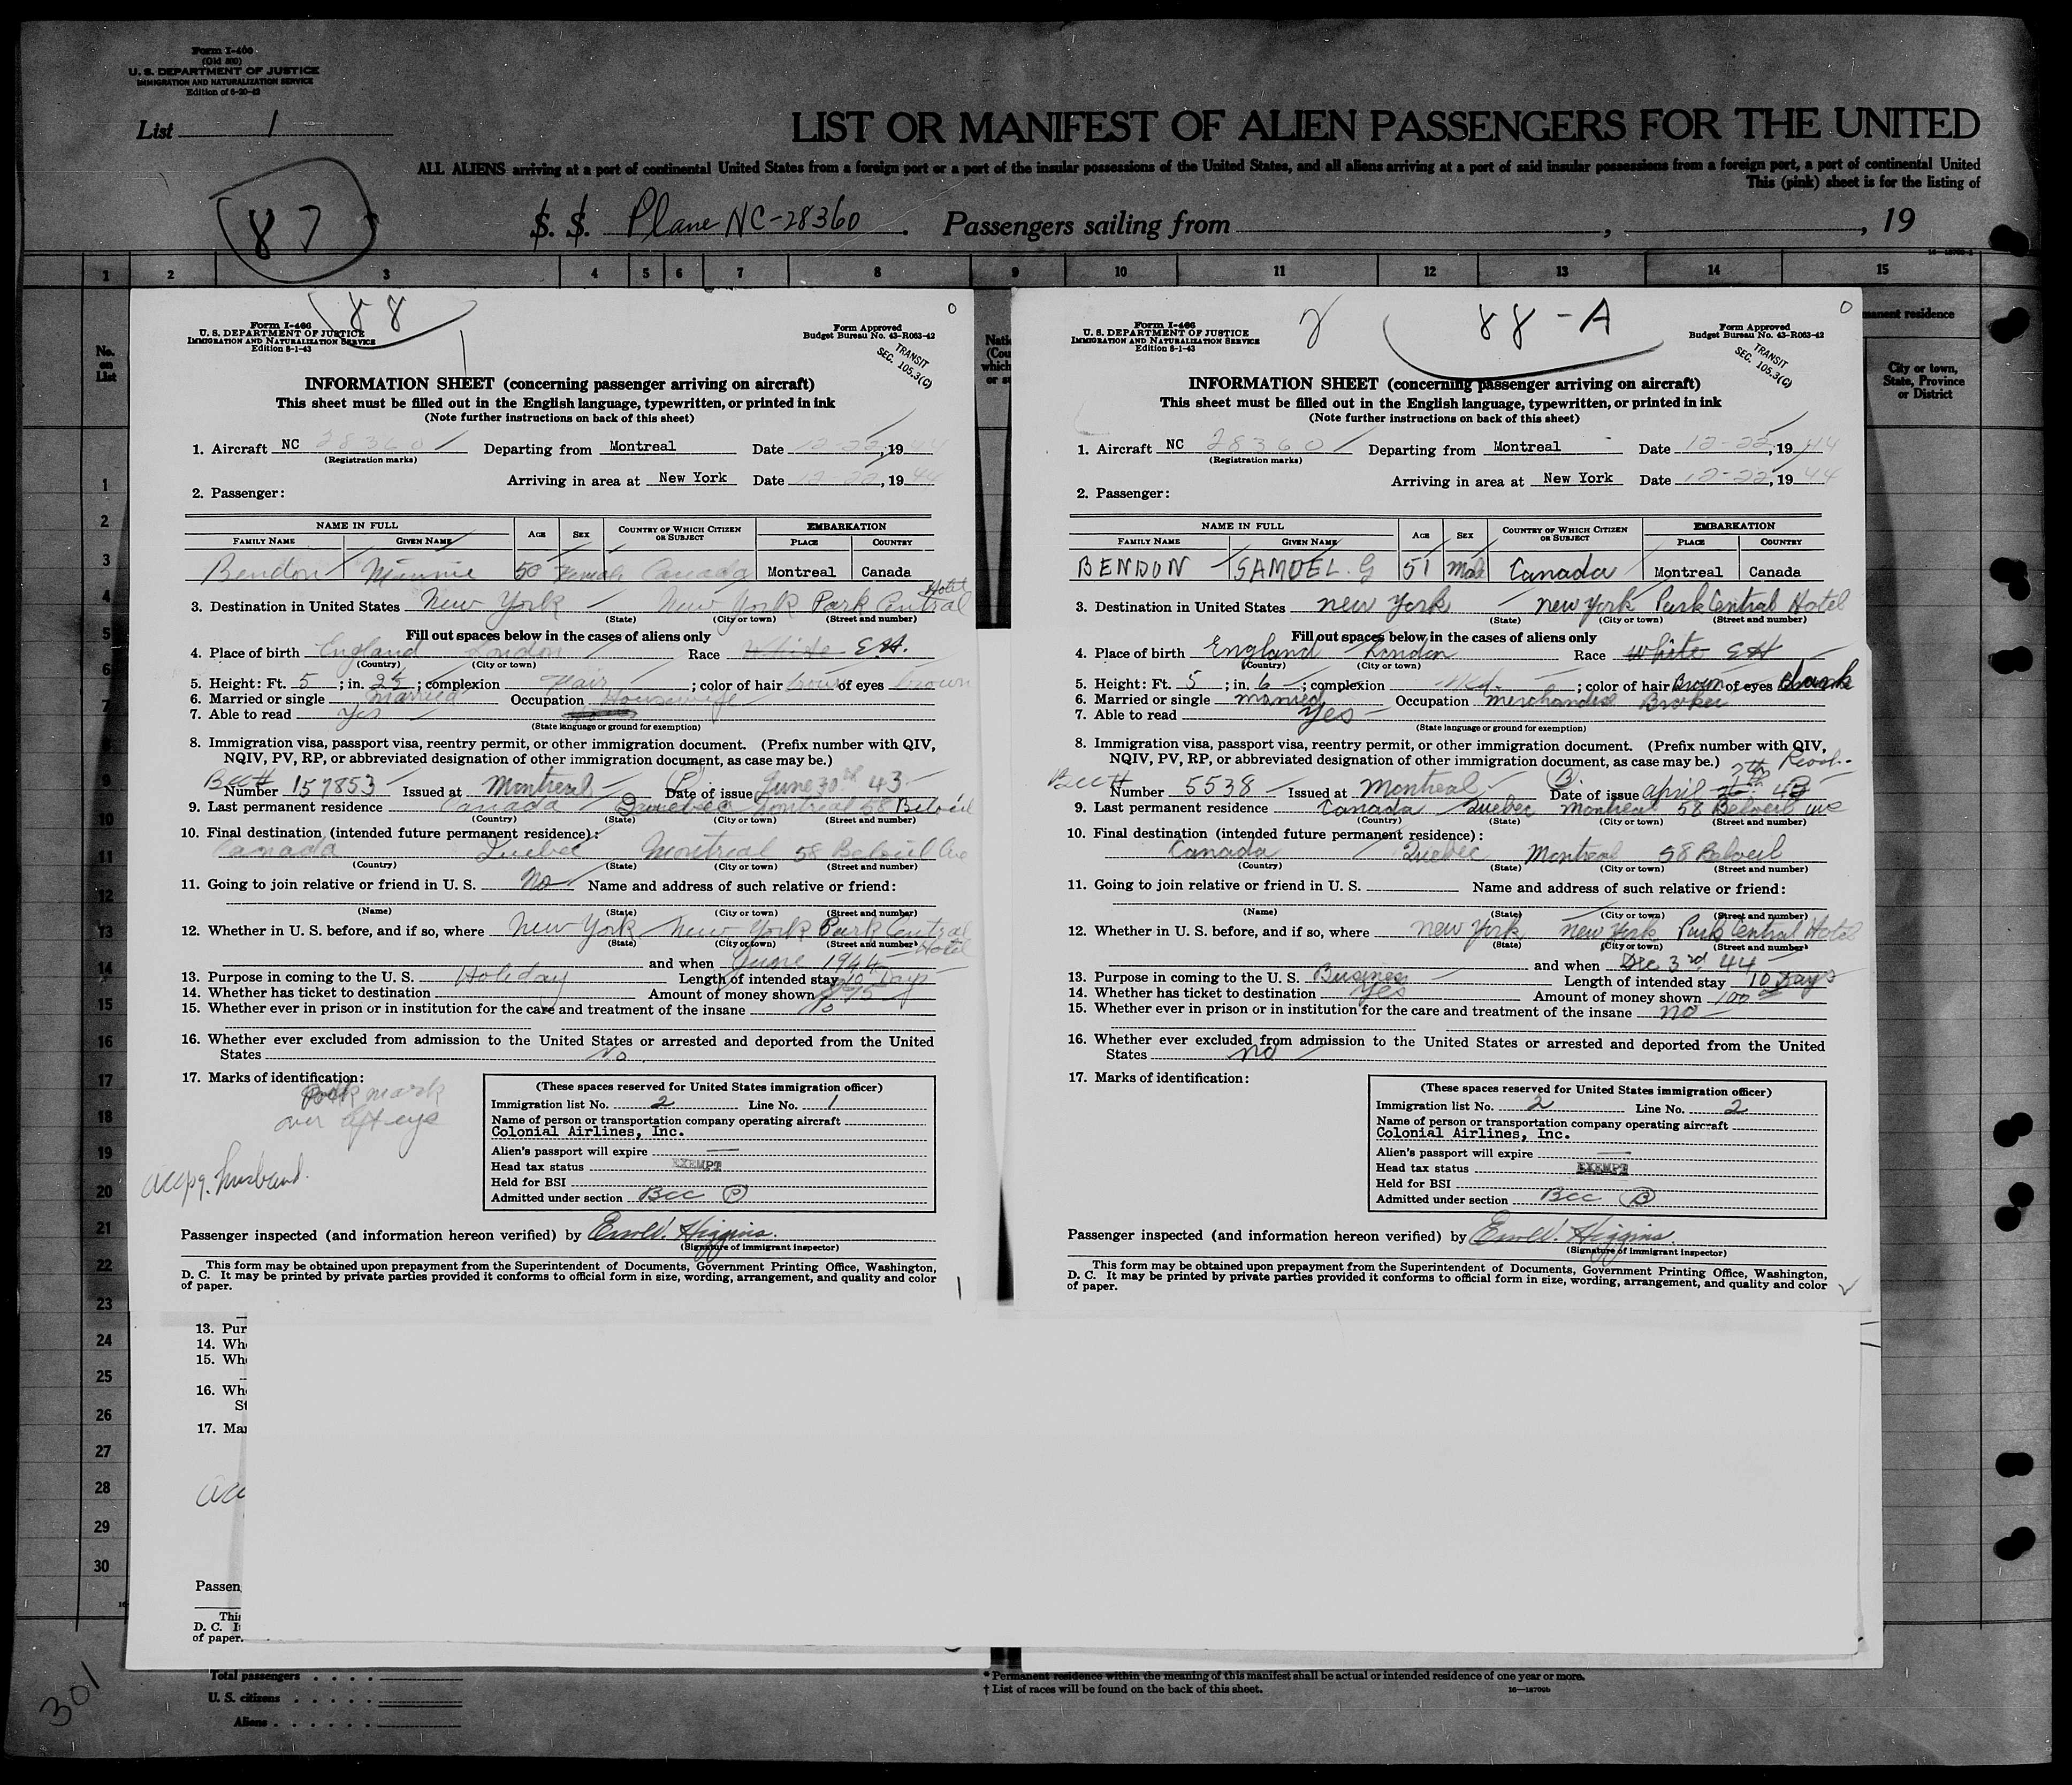 Form I-400
(Old 500)
U. S. DEPARTMENT OF JUSTICE
IMMIGRATION AND NATURALIZATION SERVICE
Edition of 6-20-42
List 1
LIST OR MANIFEST OF ALIEN PASSENGERS FOR THE UNITED
ALL ALIENS arriving at a port of continental United States from a foreign port or a port of the insular possessions of the United States, and all aliens arriving at a port of said insular possessions from a foreign port, a port of continental United
This (pink) sheet is for the listing of
87
S. S. Plane NC-28360. Passengers sailing from , , 19
1 2 3 4 5 6 7 8 9 10 11 12 13 14 15
No. on List
manent residence
City or town, State, Province or District
88
Form I-466
U. S. DEPARTMENT OF JUSTICE
IMMIGRATION AND NATURALIZATION SERVICE
Edition 8-1-43
Form Approved
Budget Bureau No. 43-R063-42
TRANSIT
SEC. 105.3(C)
INFORMATION SHEET (concerning passenger arriving on aircraft)
This sheet must be filled out in the English language, typewritten, or printed in ink
(Note further instructions on back of this sheet)
1. Aircraft NC 28360 Departing from Montreal Date 12-22, 1944
(Registration marks)
Arriving in area at New York Date 12-22, 1944
2. Passenger:
NAME IN FULL AGE SEX COUNTRY OF WHICH CITIZEN OR SUBJECT EMBARKATION
FAMILY NAME GIVEN NAME PLACE COUNTRY
Bendon Minnie 50 Female Canada Montreal Canada
3. Destination in United States New York New York Park Central Hotel
(State) (City or town) (Street and number)
Fill out spaces below in the cases of aliens only
4. Place of birth England London Race White E.H.
(Country) (City or town)
5. Height: Ft. 5 ; in. 2½ ; complexion Fair ; color of hair brown of eyes brown
6. Married or single married Occupation Housewife
7. Able to read Yes
(State language or ground for exemption)
8. Immigration visa, passport visa, reentry permit, or other immigration document. (Prefix number with QIV,
NQIV, PV, RP, or abbreviated designation of other immigration document, as case may be.)
BCC# Number 157853 Issued at Montreal (P) Date of issue June 30th 43
9. Last permanent residence Canada Quebec Montreal 58 Beloeil
(Country) (State) (City or town) (Street and number)
10. Final destination (intended future permanent residence):
Canada Quebec Montreal 58 Beloeil Ave
(Country) (State) (City or town) (Street and number)
11. Going to join relative or friend in U. S. No Name and address of such relative or friend:
(Name) (State) (City or town) (Street and number)
12. Whether in U. S. before, and if so, where New York New York Park Central Hotel
(State) (City or town) (Street and number)
and when June 1944
13. Purpose in coming to the U. S. Holiday Length of intended stay 10 Days
14. Whether has ticket to destination Amount of money shown $75
15. Whether ever in prison or in institution for the care and treatment of the insane No
16. Whether ever excluded from admission to the United States or arrested and deported from the United
States No.
17. Marks of identification:
Pock mark
over left eye
accpg. husband.
(These spaces reserved for United States immigration officer)
Immigration list No. 2 Line No. 1
Name of person or transportation company operating aircraft
Colonial Airlines, Inc.
Alien's passport will expire —
Head tax status EXEMPT
Held for BSI
Admitted under section BCC (P)
Passenger inspected (and information hereon verified) by Higgins.
(Signature of immigrant inspector)
This form may be obtained upon prepayment from the Superintendent of Documents, Government Printing Office, Washington,
D. C. It may be printed by private parties provided it conforms to official form in size, wording, arrangement, and quality and color
of paper.
2
88-A
Form I-466
U. S. DEPARTMENT OF JUSTICE
IMMIGRATION AND NATURALIZATION SERVICE
Edition 8-1-43
Form Approved
Budget Bureau No. 43-R063-42
TRANSIT
SEC. 105.3(C)
INFORMATION SHEET (concerning passenger arriving on aircraft)
This sheet must be filled out in the English language, typewritten, or printed in ink
(Note further instructions on back of this sheet)
1. Aircraft NC 28360 Departing from Montreal Date 12-22, 1944
(Registration marks)
Arriving in area at New York Date 12-22, 1944
2. Passenger:
NAME IN FULL AGE SEX COUNTRY OF WHICH CITIZEN OR SUBJECT EMBARKATION
FAMILY NAME GIVEN NAME PLACE COUNTRY
BENDON SAMUEL. G 51 Male Canada Montreal Canada
3. Destination in United States new York new York Park Central Hotel
(State) (City or town) (Street and number)
Fill out spaces below in the cases of aliens only
4. Place of birth England London Race White EH
(Country) (City or town)
5. Height: Ft. 5 ; in. 6 ; complexion Med. ; color of hair Brown of eyes
6. Married or single married Occupation merchandise Broker
7. Able to read Yes
(State language or ground for exemption)
8. Immigration visa, passport visa, reentry permit, or other immigration document. (Prefix number with QIV,
NQIV, PV, RP, or abbreviated designation of other immigration document, as case may be.)
BCC# Number 5538 Issued at Montreal (B) Date of issue april 43
9. Last permanent residence Canada Quebec Montreal 58 Beloeil ave
(Country) (State) (City or town) (Street and number)
10. Final destination (intended future permanent residence):
Canada Quebec Montreal 58 Beloeil
(Country) (State) (City or town) (Street and number)
11. Going to join relative or friend in U. S. Name and address of such relative or friend:
(Name) (State) (City or town) (Street and number)
12. Whether in U. S. before, and if so, where new York new York Park Central Hotel
(State) (City or town) (Street and number)
and when Dec 3rd 44
13. Purpose in coming to the U. S. Business Length of intended stay 10 Days
14. Whether has ticket to destination Yes Amount of money shown 100
15. Whether ever in prison or in institution for the care and treatment of the insane no
16. Whether ever excluded from admission to the United States or arrested and deported from the United
States no
17. Marks of identification:
(These spaces reserved for United States immigration officer)
Immigration list No. 2 Line No. 2
Name of person or transportation company operating aircraft
Colonial Airlines, Inc.
Alien's passport will expire —
Head tax status EXEMPT
Held for BSI
Admitted under section BCC (B)
Passenger inspected (and information hereon verified) by Higgins.
(Signature of immigrant inspector)
This form may be obtained upon prepayment from the Superintendent of Documents, Government Printing Office, Washington,
D. C. It may be printed by private parties provided it conforms to official form in size, wording, arrangement, and quality and color
of paper.
1
2
3
4
5
6
7
8
9
10
11
12
13
14
15
16
17
18
19
20
21
22
23
24
25
26
27
28
29
30
13. Pur
14. Wh
15. Wh
16. Wh
St
17. Ma
acc
Passen
Thi
D. C. I
of paper.
301
Total passengers . . . .
U. S. citizens . . . . .
Aliens . . . . . .
* Permanent residence within the meaning of this manifest shall be actual or intended residence of one year or more.
† List of races will be found on the back of this sheet.